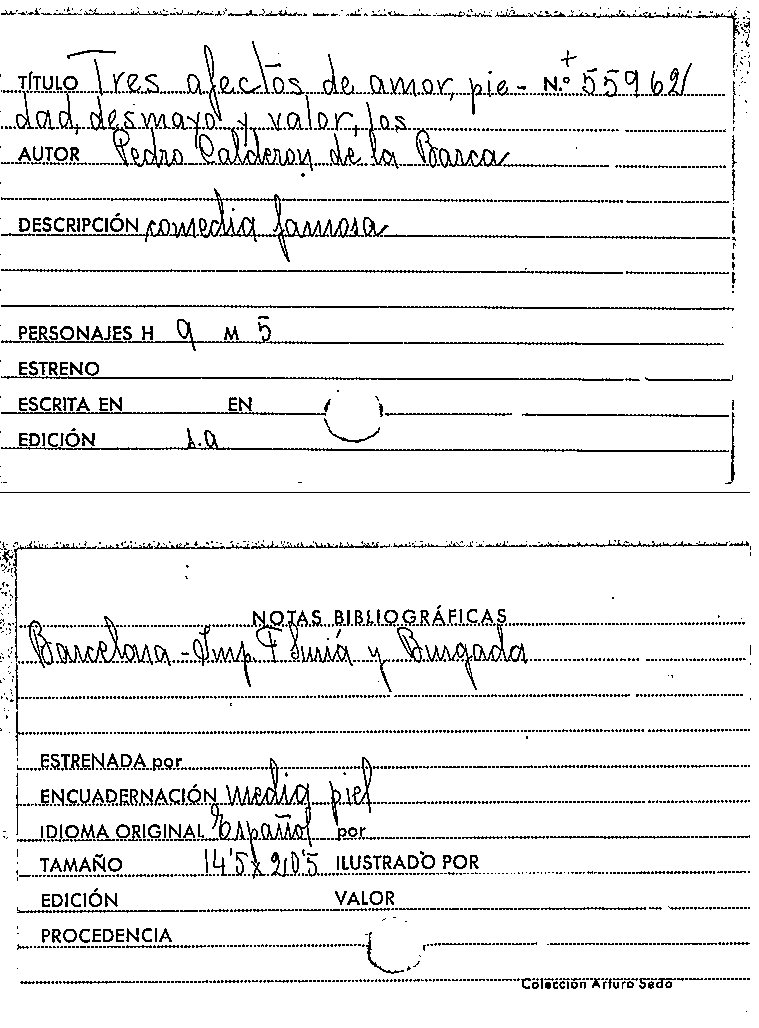 TÍTULO Tres afectos de amor, pie- N.º 55962
dad, desmayo y valor, los
AUTOR Pedro Calderon de la Barca
DESCRIPCIÓN comedia famosa
PERSONAJES H 9 M 5
ESTRENO
ESCRITA EN EN
EDICIÓN s.a
NOTAS BIBLIOGRÁFICAS
Barcelona - Imp F Suriá y Burgada
ESTRENADA por
ENCUADERNACIÓN media piel
IDIOMA ORIGINAL Español por
TAMAÑO 14'5 x 20'5 ILUSTRADO POR
EDICIÓN VALOR
PROCEDENCIA
Colección Arturo Sedó